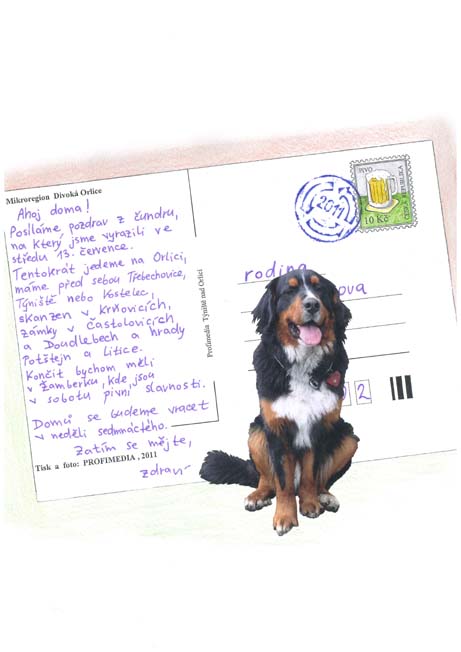 Mikroregion Divoká Orlice
Ahoj doma!
Posíláme pozdrav z čundru,
na který jsme vyrazili ve
středu 13. července.
Tentokrát jedeme na Orlici,
máme před sebou Třebechovice,
Týniště nebo Kostelec,
skanzen v Krňovicích,
zámky v Častolovicích
a Doudlebech a hrady
Potštejn a Litice.
Končit bychom měli
v Žamberku, kde jsou
v sobotu pivní slavnosti.
Domů se budeme vracet
v neděli sedmnáctého.
Zatím se mějte,
zdraví
Tisk a foto: PROFIMEDIA, 2011
Profimedia Týniště nad Orlicí
2011
PIVO
10 Kč
REPUBLIKA
rodina
ova
02